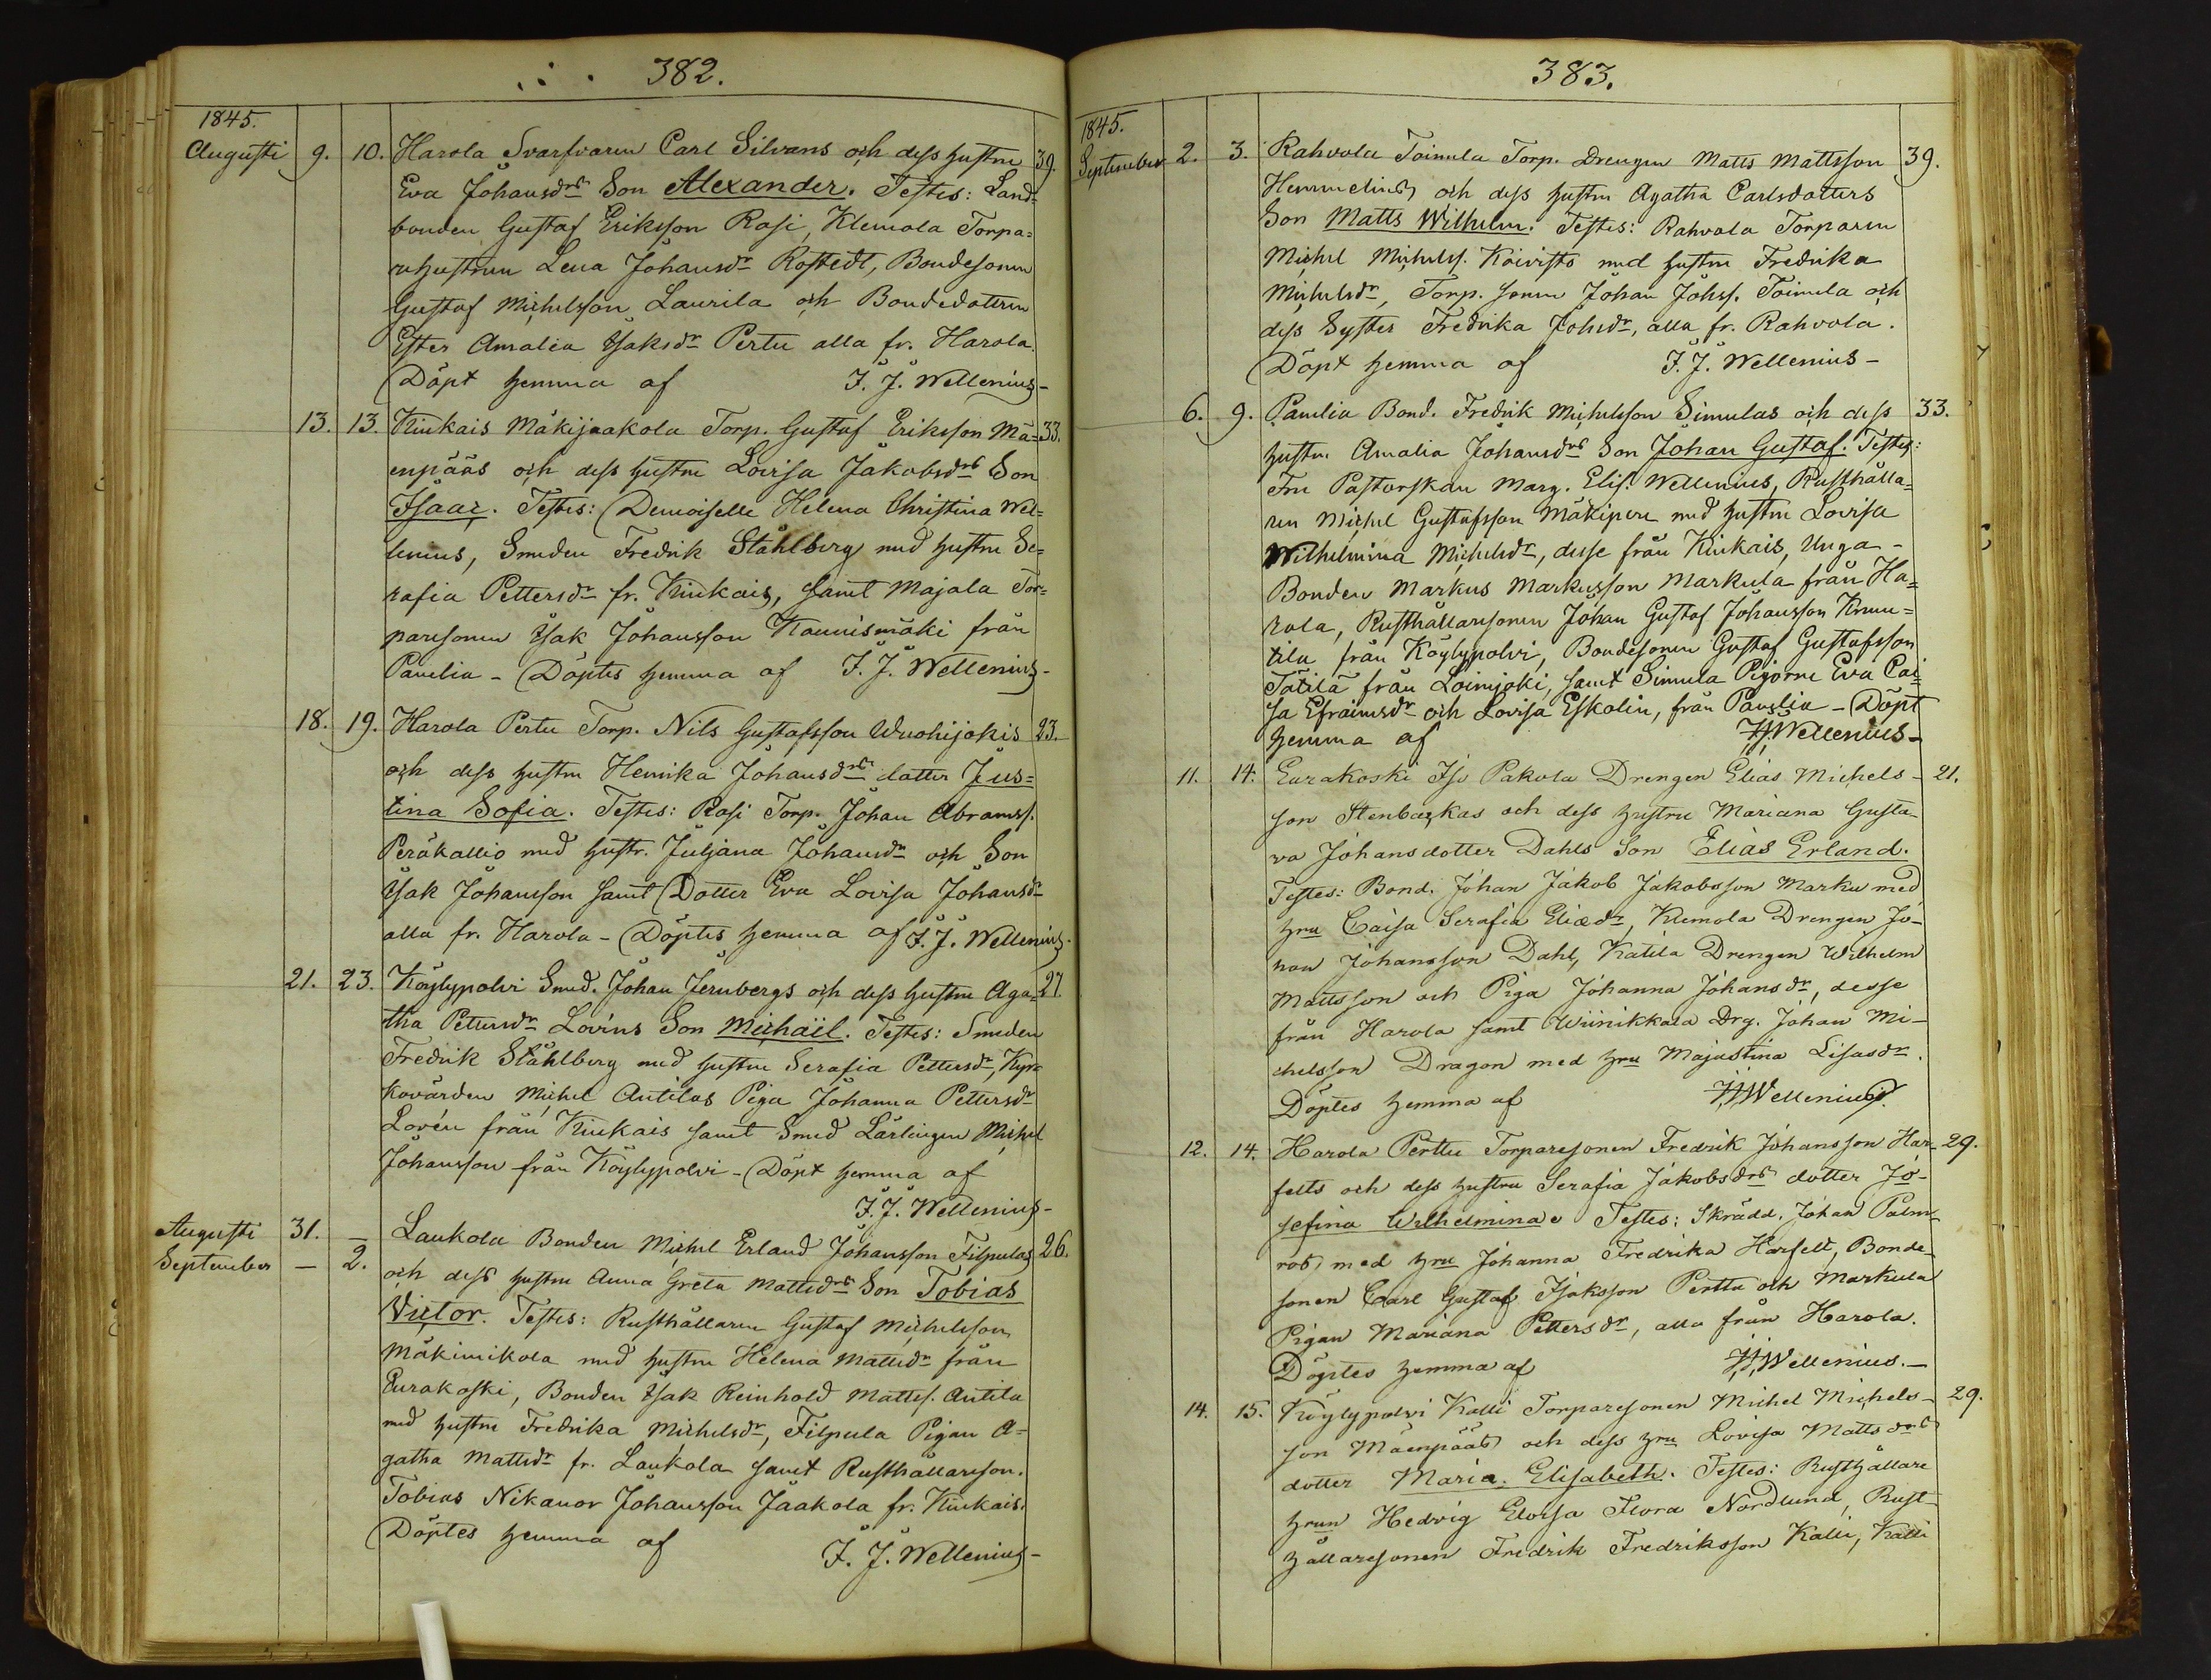 382.
1845.
Augusti 9. 10. Harola Svarfvaren Carl Silvans och dess hustru 39.
Eva Johansdrs Son Alexander. Testes: Land=
bonden Gustaf Eriksson Rasi, Klemola Torpa=
rehustrun Lena Johansdr Rostedt, Bondesonen
Gustaf Michelsson Laurila och Bondedottren
Ester Amalia Isaksdr Pertu alla fr. Harola.
Döpt hemma af J. J. Wellenius-
13. 13. Kiukais Mäkijaakola Torp. Gustaf Eriksson Mä= 33.
enpääs och dess hustru Lovisa Jakobsdrs Son
Isaac. Testes: Demoiselle Helena Christina Wel=
lenius, Smeden Fredrik Ståhlberg med hustru Se=
rafia Pettersdr fr. Kiukais, samt Majala Tor=
paresonen Isak Johansson Kaunismäki från
Panelia - Döptes hemma af J. J. Wellenius-
18. 19. Harola Pertu Torp. Nils Gustafsson Wuohijokis 23.
och dess hustru Henrika Johansdrs dotter Jus=
tina Sofia. Testes: Rasi Torp. Johan Abramss.
Peräkallio med hustr. Juljana Johansdr och Son
Isak Johansson samt Dotter Eva Lovisa Johansdr
alla fr. Harola - Döptes hemma af J. J. Wellenius.
21. 23. Köylypolvi Smed. Johan Jernbergs och dess hustru Aga= 27.
tha Pettersdr Lovéns Son Michaël. Testes: Smeden
Fredrik Ståhlberg med hustru Serafia Pettersdr, Kyr=
kovärden Michel Antilas Piga Johanna Pettersdr
Lovén från Kiukais samt Smed Lärlingen Michel
Johansson från Köylypolvi - Döpt hemma af
J. J. Wellenius-
Augusti 31. — Laukola Bonden Michel Erland Johansson Filpulas 26.
September — 2. och dess hustru Anna Greta Mattsdrs Son Tobias
Victor. Testes: Rusthållaren Gustaf Michelsson
Mäkimikola med hustru Helena Mattsdr från
Eurakoski, Bonden Isak Reinhold Mattss. Antila
med hustru Fredrika Michelsdr, Filpula Pigan A=
gatha Mattsdr fr. Laukola samt Rusthållareson.
Tobias Nikanor Johansson Jaakola fr. Kiukais.
Döptes hemma af J. J. Wellenius-
383.
1845.
September 2. 3. Rahvola Toimela Torp. Drengen Matts Mattsson 39.
Hemmelins och dess hustru Agatha Carlsdotters
Son Matts Wilhelm. Testes: Rahvola Torparen
Michel Michelss. Koivisto med hustru Fredrika
Michelsdr, Torp. sonen Johan Johss. Toimela och
dess Syster Fredrika Johsdr, alla fr. Rahvola.
Döpt hemma af J. J. Wellenius-
6. 9. Panelia Bond. Fredrik Michelsson Simulas och dess 33.
hustru Amalia Johansdrs Son Johan Gustaf. Testes:
Fru Pastorskan Marg. Elis. Wellenius, Rusthålla=
ren Michel Gustafsson Mäkipere med hustru Lovisa
Wilhelmina Michelsdr, desse från Kiukais, Unga-
Bonden Markus Markusson Markula från Ha=
rola, Rusthållaresonen Johan Gustaf Johansson Knuu=
tila från Köylypolvi, Bondesonen Gustaf Gustafsson
Tätilä från Loimjoki, samt Simula Pigorne Eva Cai
sa Efraimsdr och Lovisa Eskolin, från Panelia - Döpt
hemma af JJWellenius-
11. 14. Eurakoski Iso Pakola Drengen Elias Michels- 21.
son Stenbackas och dess hustru Mariana Gusta-
va Johansdotter Dahls Son Elias Erland.
Testes: Bond. Johan Jakob Jakobsson Marku med
hru Caisa Serafia Eliædr, Klemola Drengen Jo-
han Johansson Dahl, Katila Drengen Wilhelm
Mattsson och Piga Johanna Johansdr, desse
från Harola samt Wiinikkala Drg. Johan Mi-
chelsson Dragon med hru Majastina Lisasdr.
Döptes hemma af JJWellenius.
12. 14. Harola Perttu Torparesonen Fredrik Johansson Har- 29.
felts och dess hustru Serafia Jakobsdrs dotter Jo-
sefina Wilhelmina. Testes: Skrädd. Johan Palm-
ros med hru Johanna Fredrika Harfelt, Bonde-
sonen Carl Gustaf Isaksson Perttu och Markula
Pigan Mariana Pettersdr, alla från Harola.
Döptes hemma af JJWellenius.-
14. 15. Köylypolvi Kalli Torparesonen Michel Michels- 29.
son Mäenpääs och dess hru Lovisa Mattsdrs
dotter Maria Elisabeth. Testes: Rusthållare
hrun Hedvig Elovsa Flora Nordlund, Rust-
hållaresonen Fredrik Fredriksson Kalli, Kalli